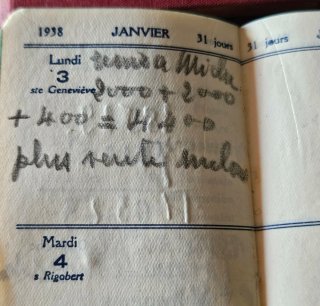 1938 JANVIER 31 jours
Lundi remis à
3 2000 + 2000
ste Geneviève
+ 400 = 4400
plus vente
Mardi
4
s Rigobert
31 jours